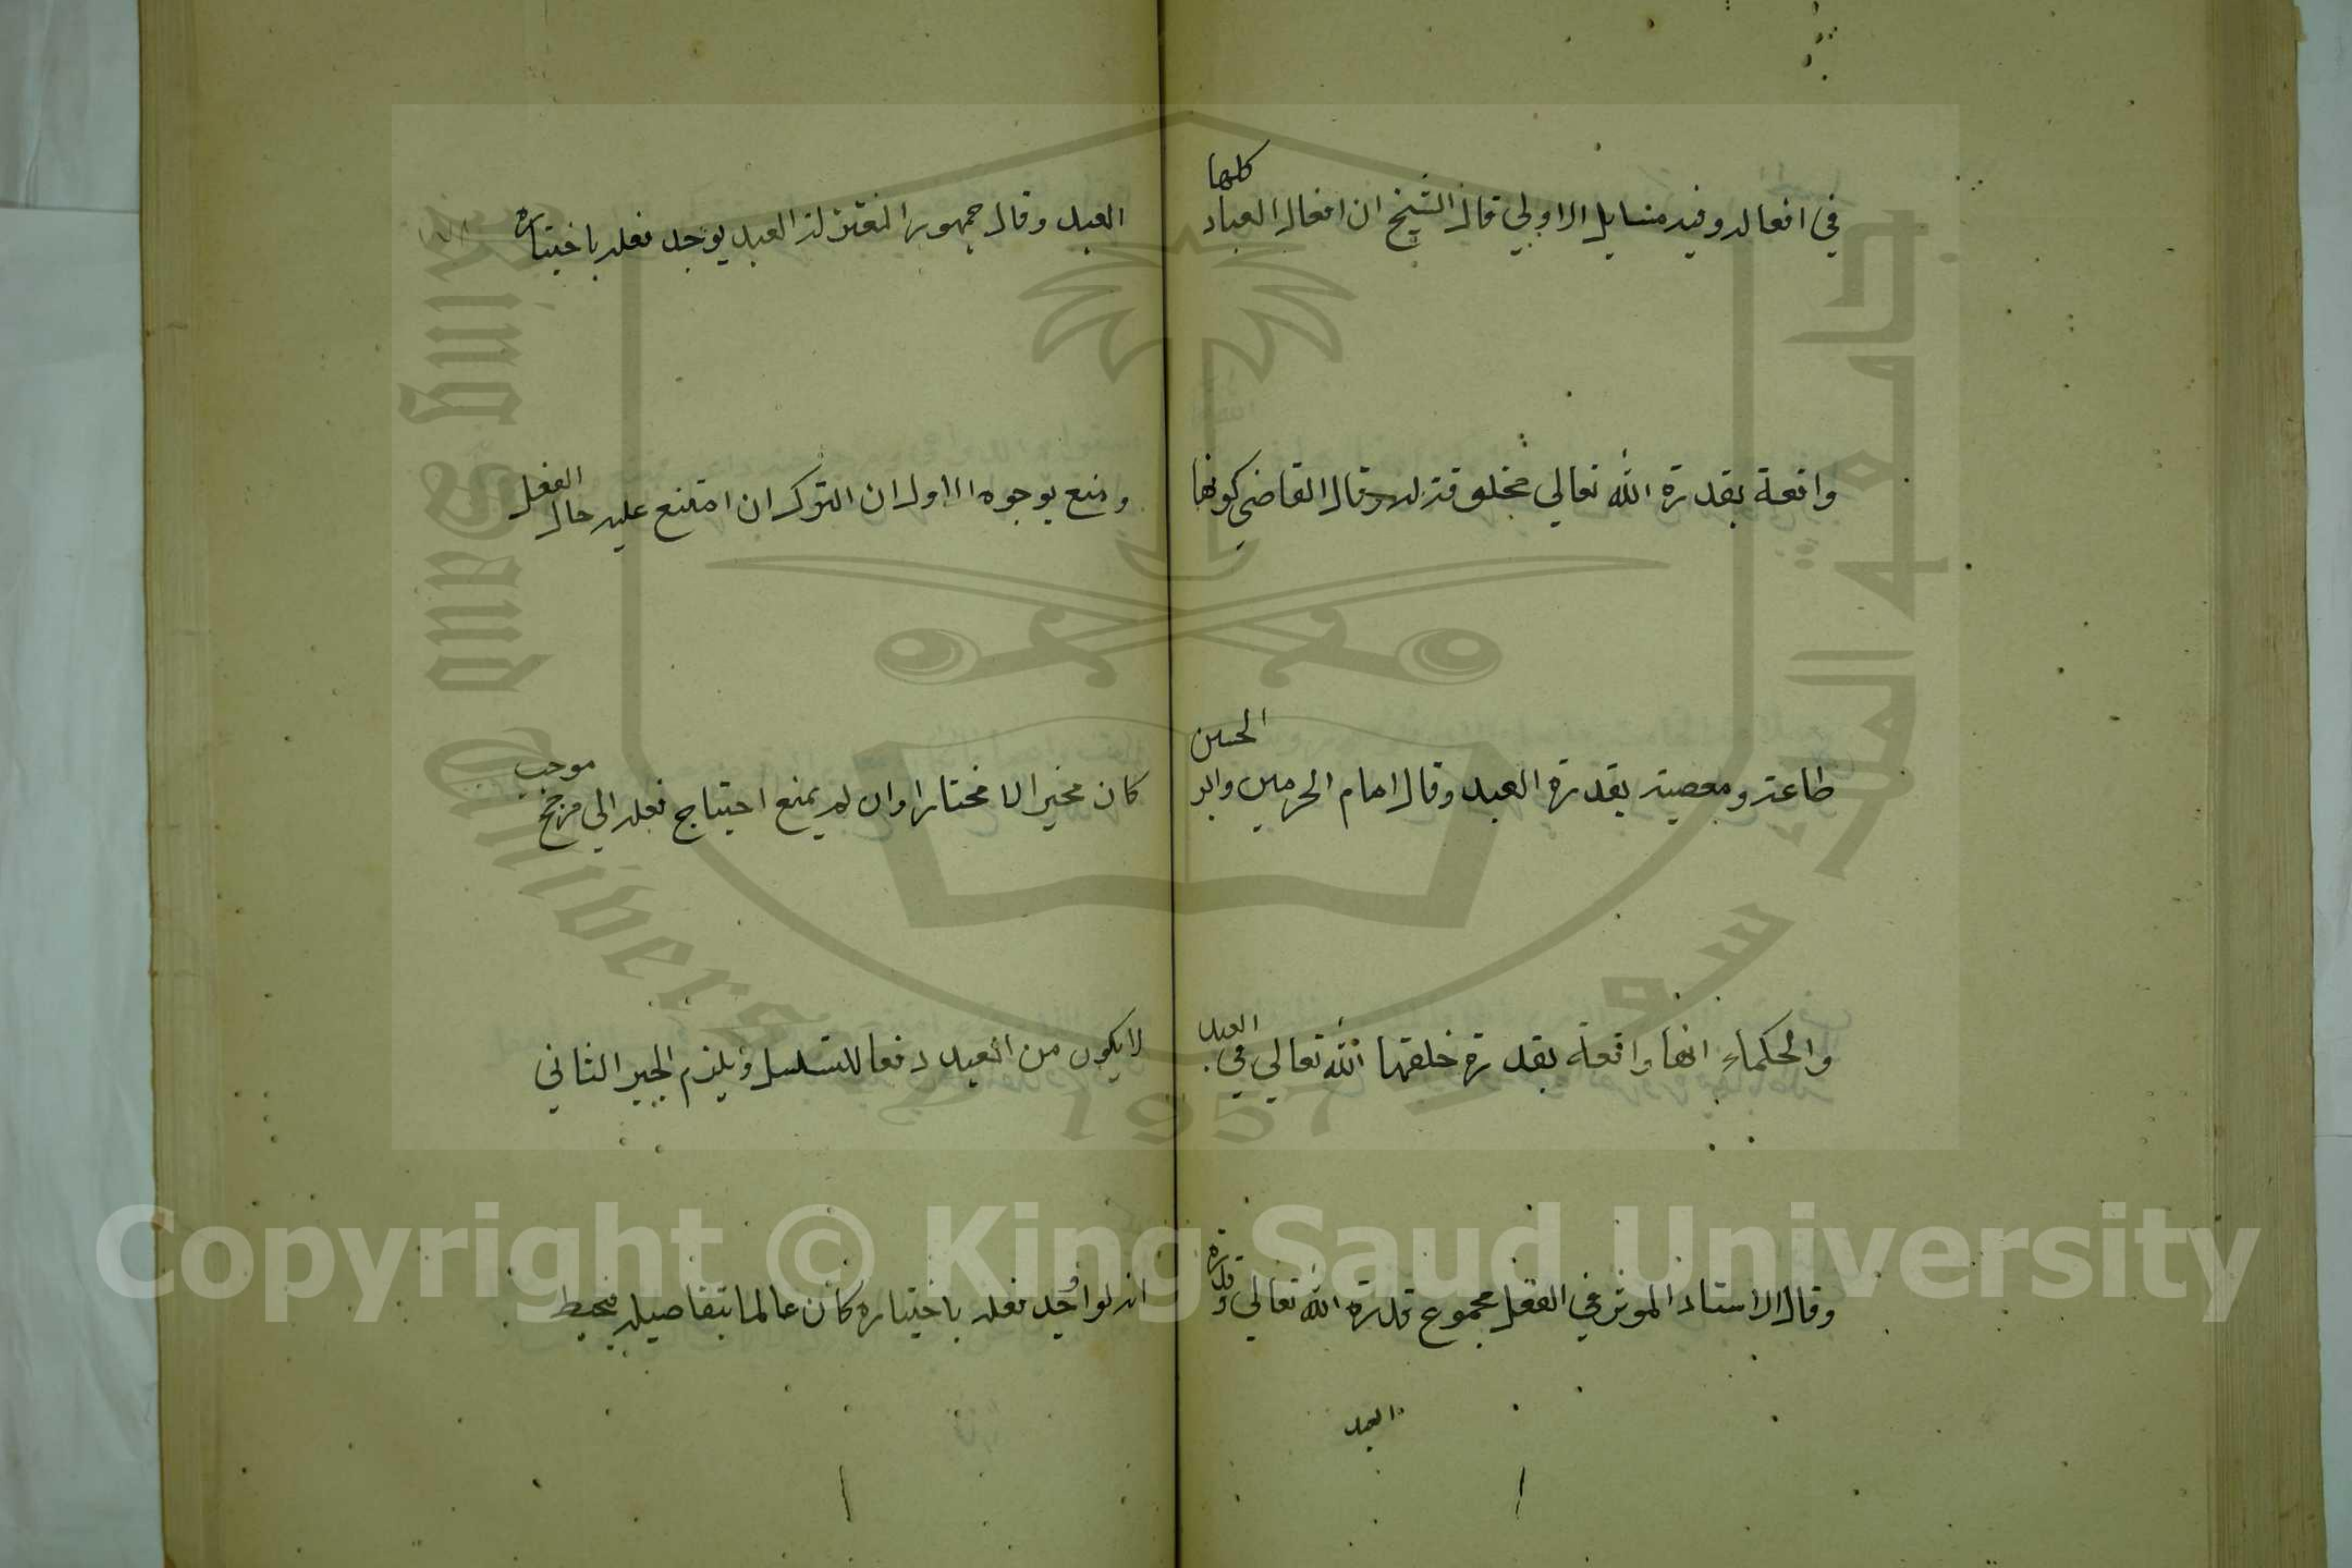 في افعاله وفيه مسايل الاولي قال الشيخ ان افعال العباد كلها
واقعة بقدرة الله تعالي مخلوقة له وقال القاضي كونها
طاعة ومعصية بقدرة العبد وقال امام الحرمين وابو الحسين
والحكماء انها واقعة بقدرة خلقها الله تعالي في العبد
وقال الاستاذ الموثر في الفعل مجموع قدرة الله تعالي وقدرة
العبد
العبد وقال جمهور المعتزلة العبد يوجد فعله باختياره
ومنع بوجوه الاول ان الترك ان امتنع عليه حال الفعل
كان مخيرا لا مختارا وان لم يمنع احتياج فعله الي مرجح موجب
لا يكون من العبد دفعا للتسلسل ويلزم الجبر الثاني
انه لو اوجد فعله باختياره كان عالما بتفاصيله فيحيط
جامعة الملك سعود
King Saud University
1957
Copyright © King Saud University